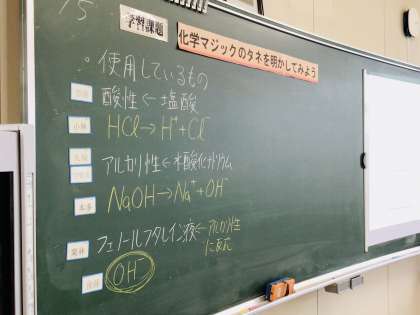 15
学習課題
化学マジックのタネを明かしてみよう
。使用しているもの
酸性 ← 塩酸
小林
HCl → H⁺ + Cl⁻
アルカリ性 ← 水酸化ナトリウム
NaOH → Na⁺ + OH⁻
フェノールフタレイン液 ← アルカリ性
に反応
OH⁻